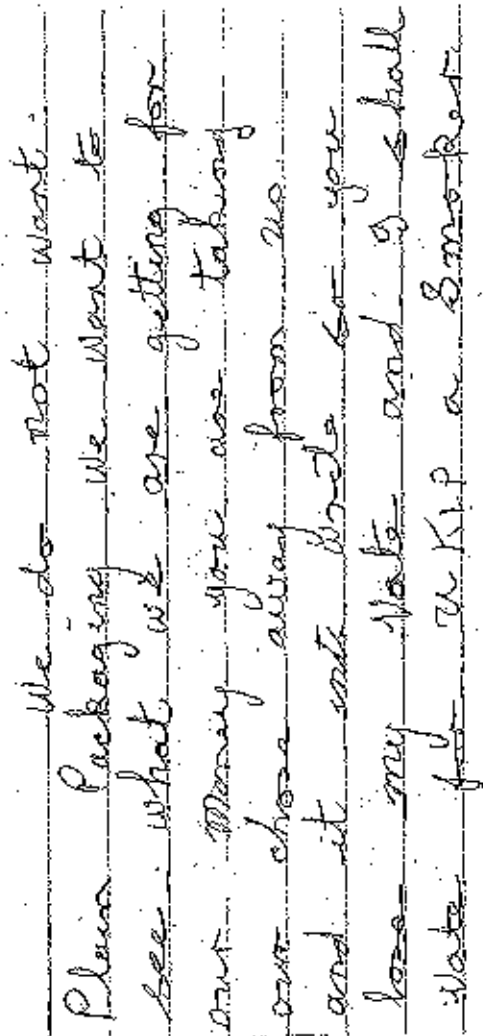 We do not want
Plain Packaging we want to
see what we are getting for
our Money you are taking
our chose away from us
and it
lose my Vote and I shall
Vote for UKIP a Smoker